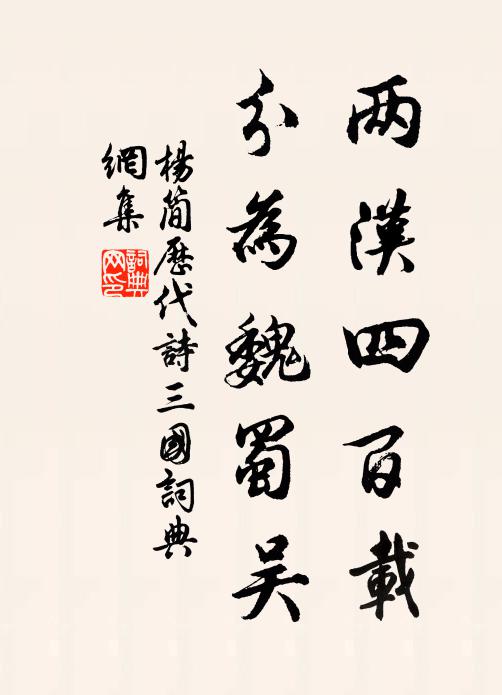 两漢四百載
分為魏蜀吴
楊簡歷代詩三國詞典
網集
詞典
网印